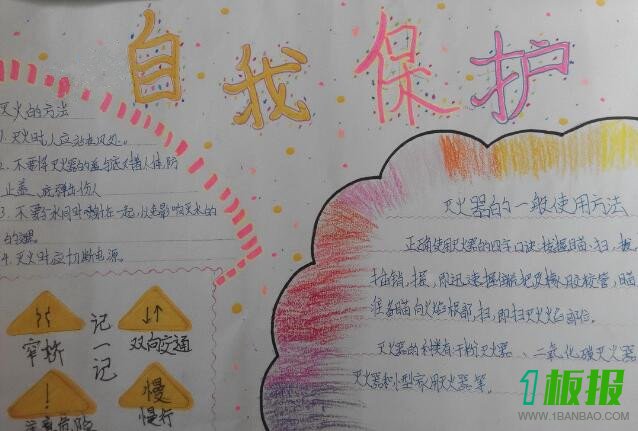 自我保护
灭火的方法
1. 灭火时人应站在风处。
2. 不要将灭火器的盖与底对着人体,防
止盖、底弹出伤人
3. 不要与水同时喷射在一起,以免影响灭火的
4. 灭火时应切断电源。
记一记
窄桥
双向交通
慢
慢行
注意危险
灭火器的一般使用方法
正确使用灭火器的四字口诀
插销,握,即迅速握
瞄向火焰根部,扫,即扫灭火焰部位。
灭火器的种类有干粉灭火器、二氧化碳灭火器
灭火器和小型家用灭火器等。
1板报
WWW.1BANBAO.COM